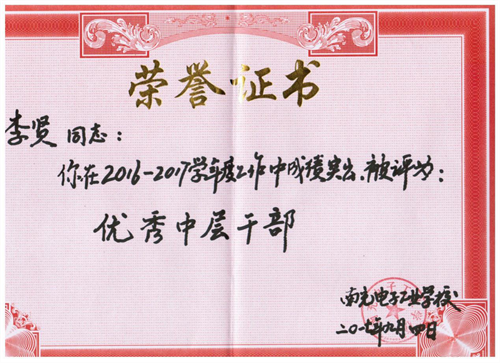 荣誉证书
李贤 同志：
你在2016-2017学年度工作中成绩突出、被评为：
优秀中层干部
南充电子工业学校
二〇一七年九月四日